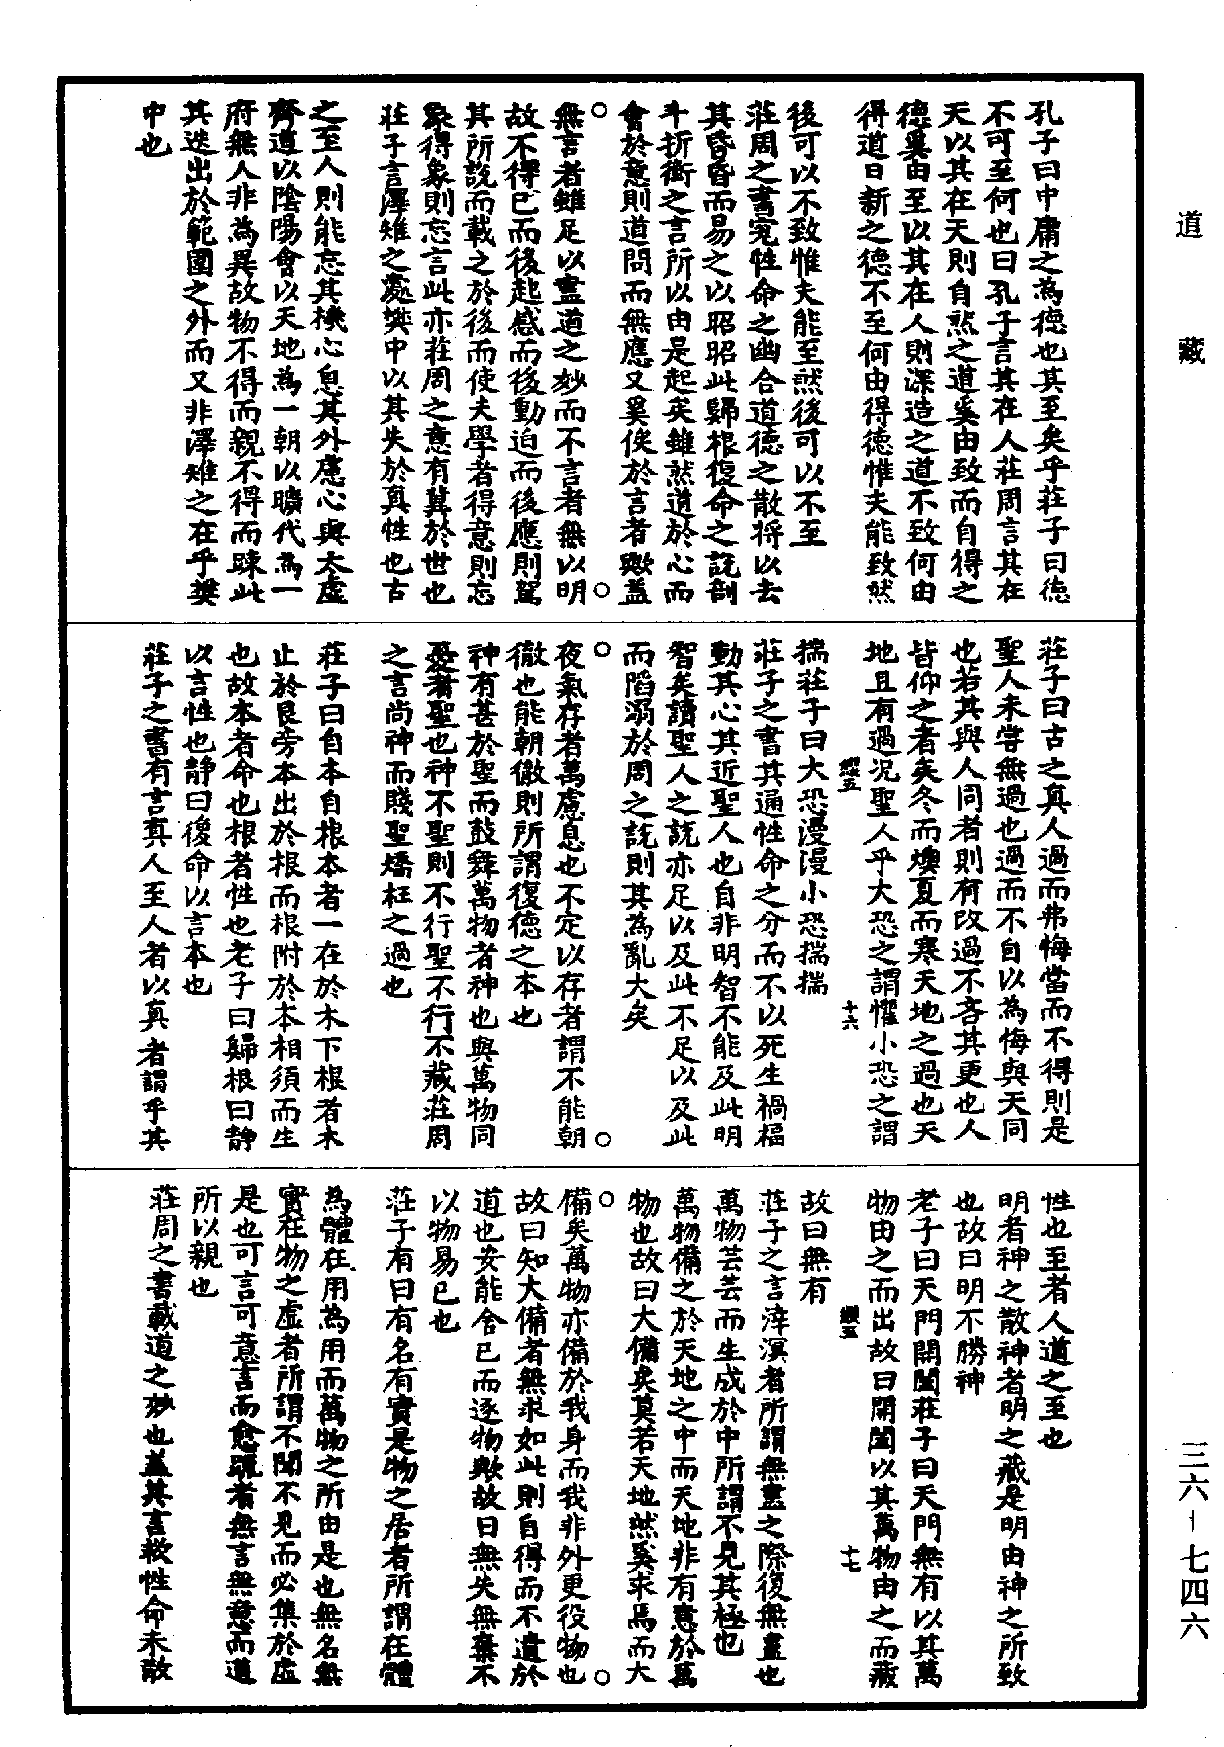 道藏
三六-七四六
孔子曰中庸之為德也其至矣乎莊子曰德
不可至何也曰孔子言其在人莊周言其在
天以其在天則自然之道奚由致而自得之
德奚由至以其在人則深造之道不致何由
得道日新之德不至何由得德惟夫能致然
後可以不致惟夫能至然後可以不至
莊周之書究性命之幽合道德之散將以去
其昏昏而易之以昭昭此歸根復命之說剖
斗折衡之言所以由是起矣雖然道於心而
會於意則道問而無應又奚俟於言者歟蓋
無言者雖足以盡道之妙而不言者無以明
故不得已而後起感而後動迫而後應則駕
其所說而載之於後而使夫學者得意則忘
象得象則忘言此亦莊周之意有冀於世也
莊子言澤雉之處樊中以其失於真性也古
之至人則能忘其機心息其外慮心與太虛
齊道以陰陽會以天地為一朝以曠代為一
府無人非為異故物不得而親不得而踈此
其迭出於範圍之外而又非澤雉之在乎樊
中也
莊子曰古之真人過而弗悔當而不得則是
聖人未甞無過也過而不自以為悔與天同
也若其與人同者則有改過不吝其更也人
皆仰之者矣冬而燠夏而寒天地之過也天
地且有過況聖人乎大恐之謂懼小恐之謂
十六
惴莊子曰大恐漫漫小恐惴惴
莊子之書其通性命之分而不以死生禍福
動其心其近聖人也自非明智不能及此明
智矣讀聖人之說亦足以及此不足以及此
而陷溺於周之說則其為亂大矣
夜氣存者萬慮息也不定以存者謂不能朝
徹也能朝徹則所謂復德之本也
神有甚於聖而鼓舞萬物者神也與萬物同
憂者聖也神不聖則不行聖不行不藏莊周
之言尚神而賤聖矯枉之過也
莊子曰自本自根本者一在於木下根者木
止於艮旁本出於根而根附於本相須而生
也故本者命也根者性也老子曰歸根曰靜
以言性也靜曰復命以言本也
莊子之書有言真人至人者以真者謂乎其
性也至者人道之至也
明者神之散神者明之藏是明由神之所致
也故曰明不勝神
老子曰天門開闔莊子曰天門無有以其萬
物由之而出故曰開闔以其萬物由之而藏
十七
故曰無有
莊子之言涬溟者所謂無盡之際復無盡也
萬物芸芸而生成於中所謂不見其極也
萬物備之於天地之中而天地非有意於萬
物也故曰大備矣莫若天地然奚求焉而大
備矣萬物亦備於我身而我非外更役物也
故曰知大備者無求如此則自得而不遺於
道也安能舍已而逐物歟故曰無失無棄不
以物易已也
莊子有曰有名有實是物之居者所謂在體
為體在用為用而萬物之所由是也無名無
實在物之虛者所謂不聞不見而必集於虛
是也可言可意言而愈疏者無言無意而道
所以親也
莊周之書載道之妙也蓋其言救性命未散